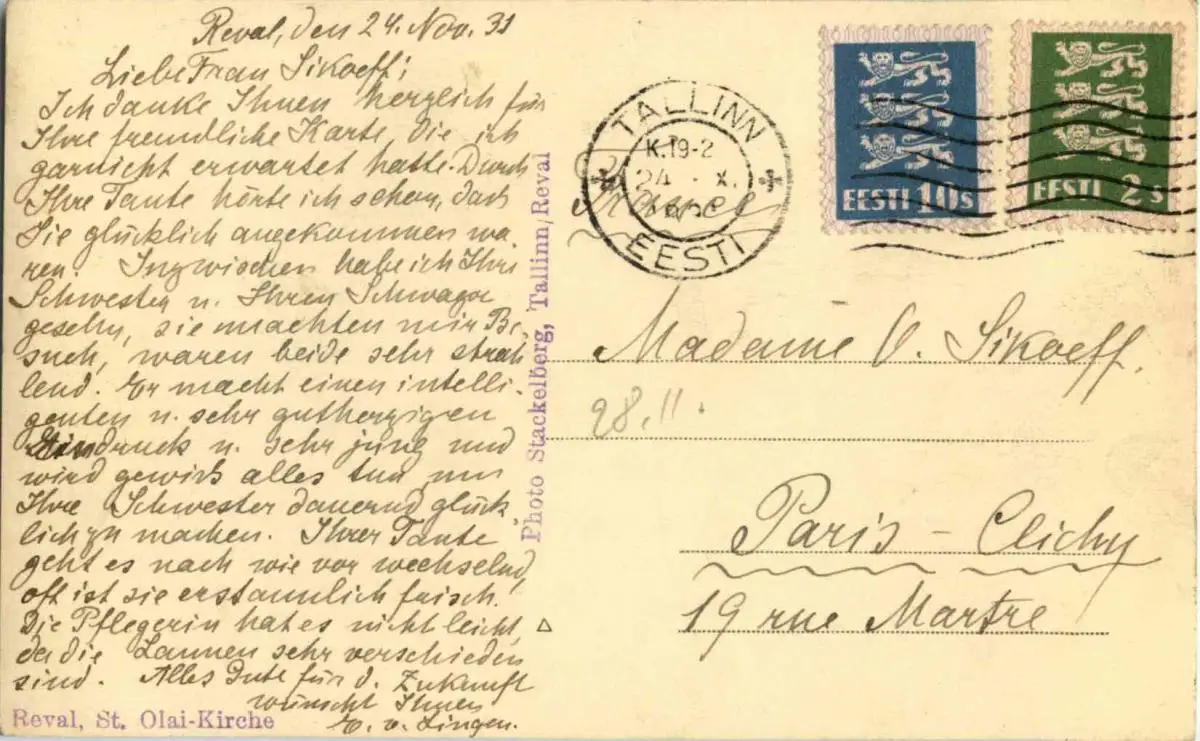 Reval, den 24. Nov. 31
Liebe Frau Sikoeff;
Ich danke Ihnen herzlich für
Ihre freundliche Karte, die ich
garnicht erwartet hatte. Durch
Ihre Tante hörte ich schon, dass
Sie glücklich angekommen wa-
ren. Inzwischen habe ich Ihre
Schwester u. Ihren Schwager
gesehn, sie machten mir Be-
such, waren beide sehr strah
lend. Er macht einen intelli-
genten u. sehr gutherzigen
Eindruck u. sehr jung und
wird gewiss alles tun um
Ihre Schwester dauernd glück
lich zu machen. Ihrer Tante
geht es nach wie vor wechselnd,
oft ist sie erstaunlich frisch.
Die Pflegerin hat es nicht leicht,
da die Launen sehr verschieden
sind. Alles Gute für d. Zukunft
wünscht Ihnen
E. v. Lingen.
Reval, St. Olai-Kirche
Photo Stackelberg, Tallinn/Reval
TALLINN
K.19-2
24 . X.
EESTI
EESTI 10s
EESTI 2s
Madame O. Sikoeff.
28.11.
Paris - Clichy
19 rue Martre